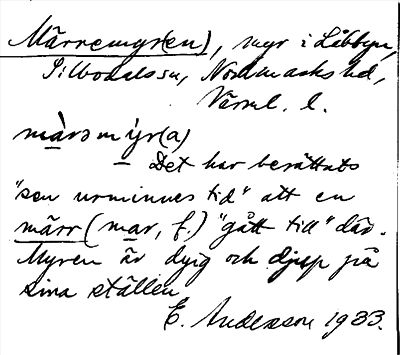 Märremyr(en), myr i Låbbyn,
Silbodals sn, Nordmarks hd,
Värml. l.
màrəmy̆r(a)
— Det har berättats
"sen urminnes tid" att en
märr (mar, f.) "gått till" där.
Myren är dyig och djup på
sina ställen
E. Andersson 1933.